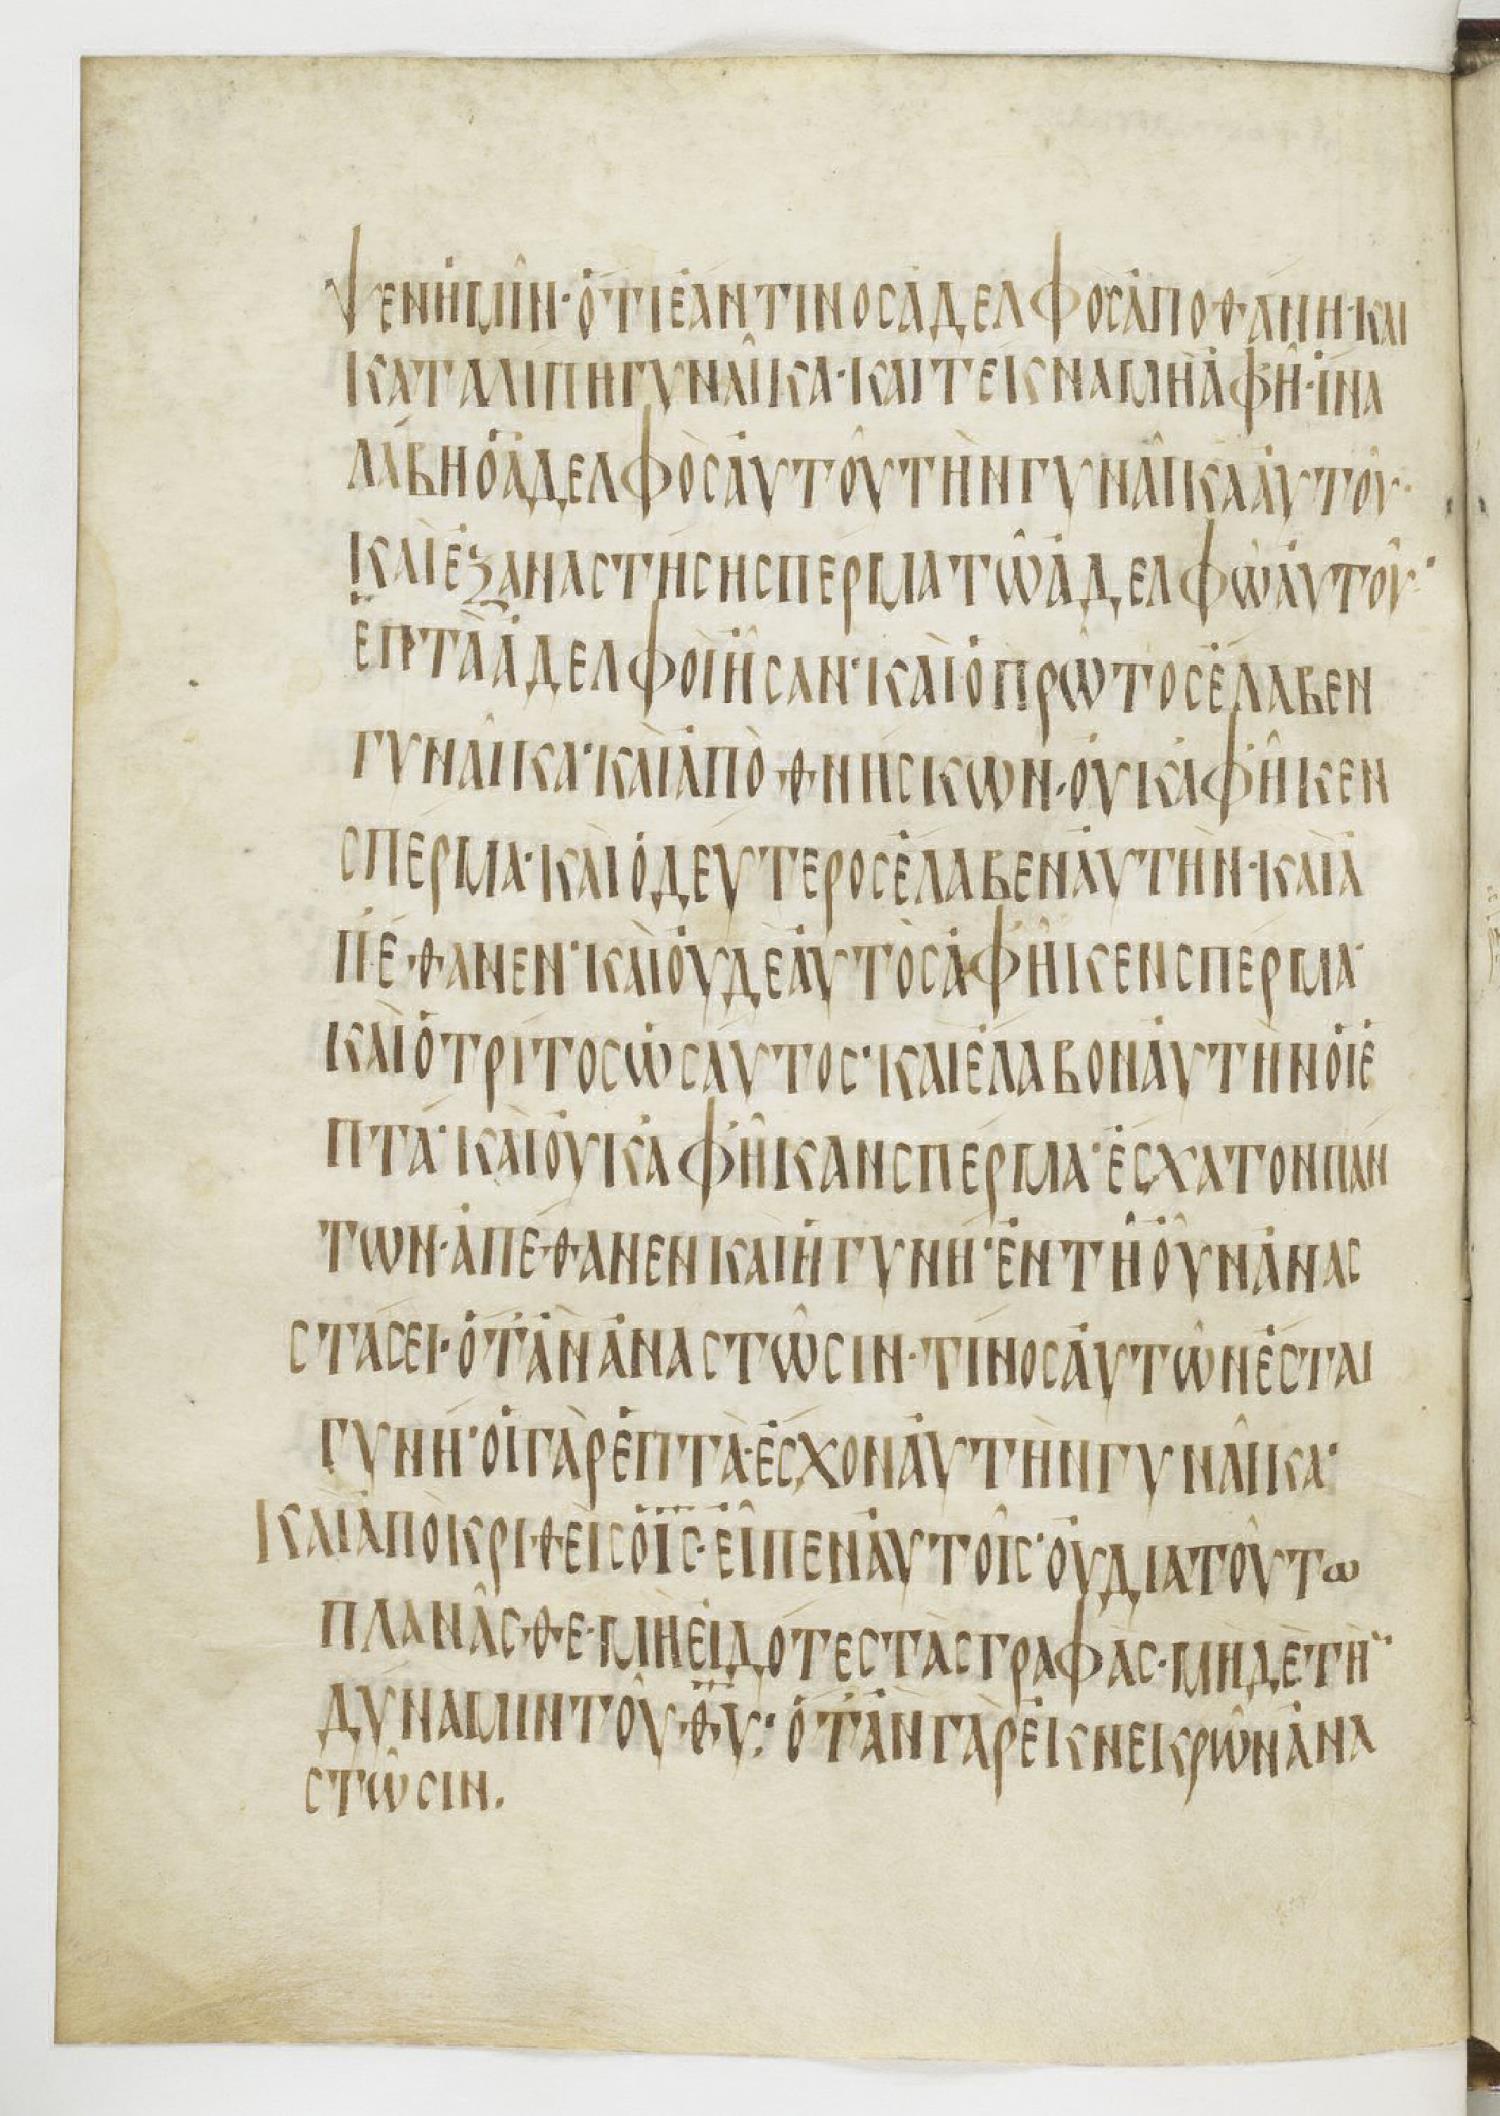 ψεν ἡμῖν· ὅτι ἐάν τινος ἀδελφὸς ἀποθάνη· και
καταλίπη γυναῖκα· καὶ τέκνα μὴ ἀφῆ· ἵνα
λάβη ὁ ἀδελφὸς αὐτοῦ τὴν γυναῖκα αὐτοῦ·
καὶ ἐξαναστήση σπέρμα τῶ ἀδελφῶ αὐτοῦ·
ἑπτὰ ἀδελφοὶ ἦσαν· καὶ ὁ πρῶτος ἔλαβεν
γυναῖκα· καὶ ἀποθνήσκων· οὐκ ἀφῆκεν
σπέρμα· καὶ ὁ δεύτερος ἔλαβεν αὐτὴν· καὶ ἀ
πέθανεν· καὶ οὐδὲ αὐτὸς ἀφῆκεν σπέρμα·
καὶ ὁ τρίτος ὡσαύτος· καὶ ἔλαβον αὐτὴν οἱ ἑ
πτά· καὶ οὐκ ἀφῆκαν σπέρμα· ἔσχατον πάν
των· ἀπέθανεν καὶ ἡ γυνή· ἐν τῆ οὖν ἀνας
στάσει· ὅταν ἀναστῶσιν· τίνος αὐτῶν ἔσται
γυνή· οἱ γὰρ ἑπτὰ· ἔσχον αὐτὴν γυναῖκα·
Καὶ ἀποκριθεὶς ὁ ις· εἶπεν αὐτοῖς· οὐ διατοῦτω
πλανᾶσθε· μὴ εἰδότες τὰς γραφὰς· μηδὲ τὴ
δύναμιν τοῦ θυ· ὅταν γὰρ ἐκ νεκρῶν ἀνα
στῶσιν.